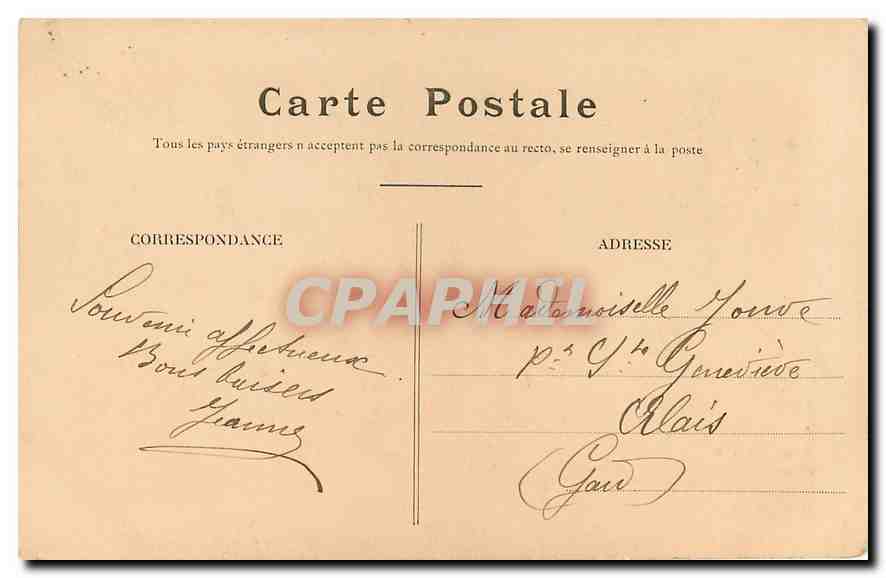 Carte Postale
Tous les pays étrangers n acceptent pas la correspondance au recto, se renseigner à la poste
CORRESPONDANCE
Souvenir affectueux
Bons baisers
Jeanne
ADRESSE
Mademoiselle Jouve
Pn Ste Geneviève
Alais
(Gard)
CPAPHIL